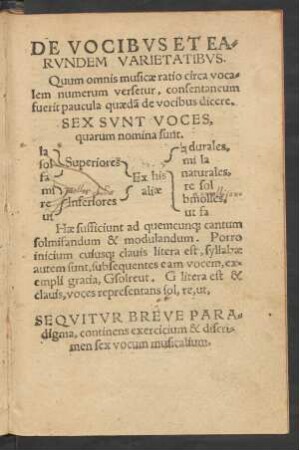 DE VOCIBVS ET EA-
RVNDEM VARIETATIBVS.
Quum omnis musicæ ratio circa voca-
lem numerum versetur, consentaneum
fuerit paucula quædã de vocibus dicere.
SEX SVNT VOCES,
quarum nomina sunt.
la
sol
fa
Superiores
mi
re
ut
Inferiores
Ex his
aliæ
♮ durales,
mi la
naturales,
re sol
bmolles,
ut fa
Hæ sufficiunt ad quemcunqʒ cantum
solmisandum & modulandum. Porro
inicium cuiusqʒ clauis litera est, syllabæ
autem sunt, subsequentes eam vocem, ex-
empli gratia, Gsolreut. G litera est &
clauis, voces representans sol, re, ut,
SEQVITVR BREVE PARA-
digma, continens exercicium & discri-
men sex vocum musicalium.